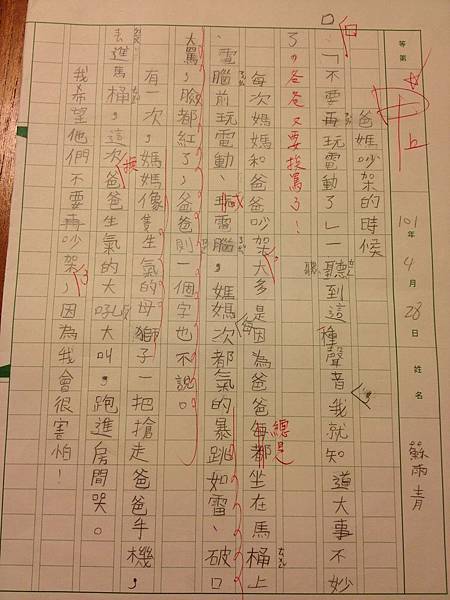 等第 上 101年4月28日 姓名 蘇雨青
爸媽吵架的時候
「不要再玩電動了」一聽到這種聲音我就知道大事不妙
了。爸爸又要挨罵了！
每次媽媽和爸爸吵架大多是因為爸爸每都總是坐在馬桶上
、電腦前玩電動、玩電腦，媽媽每次都氣的暴跳如雷、破口
大罵，臉都紅了，爸爸則一個字也不說。
有一次，媽媽像隻生氣的母獅子一把搶走爸爸手機，
丟進馬桶，這次換爸爸生氣的大吼大叫，跑進房間哭。
我希望他們不要再吵架了，因為我會很害怕！